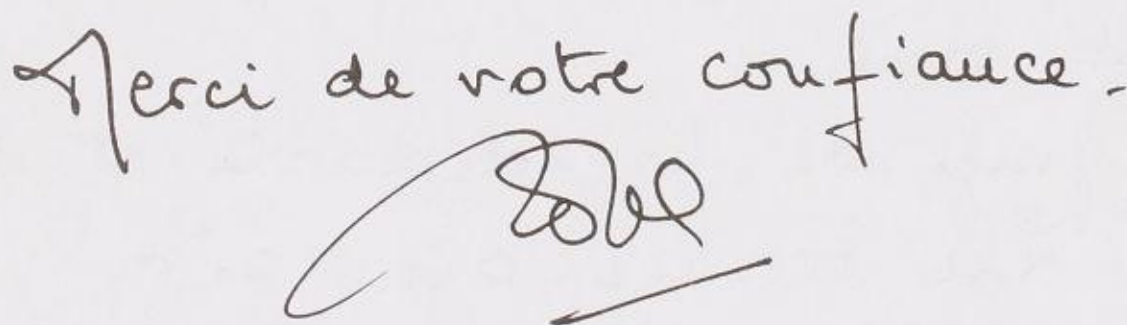 Merci de votre confiance.